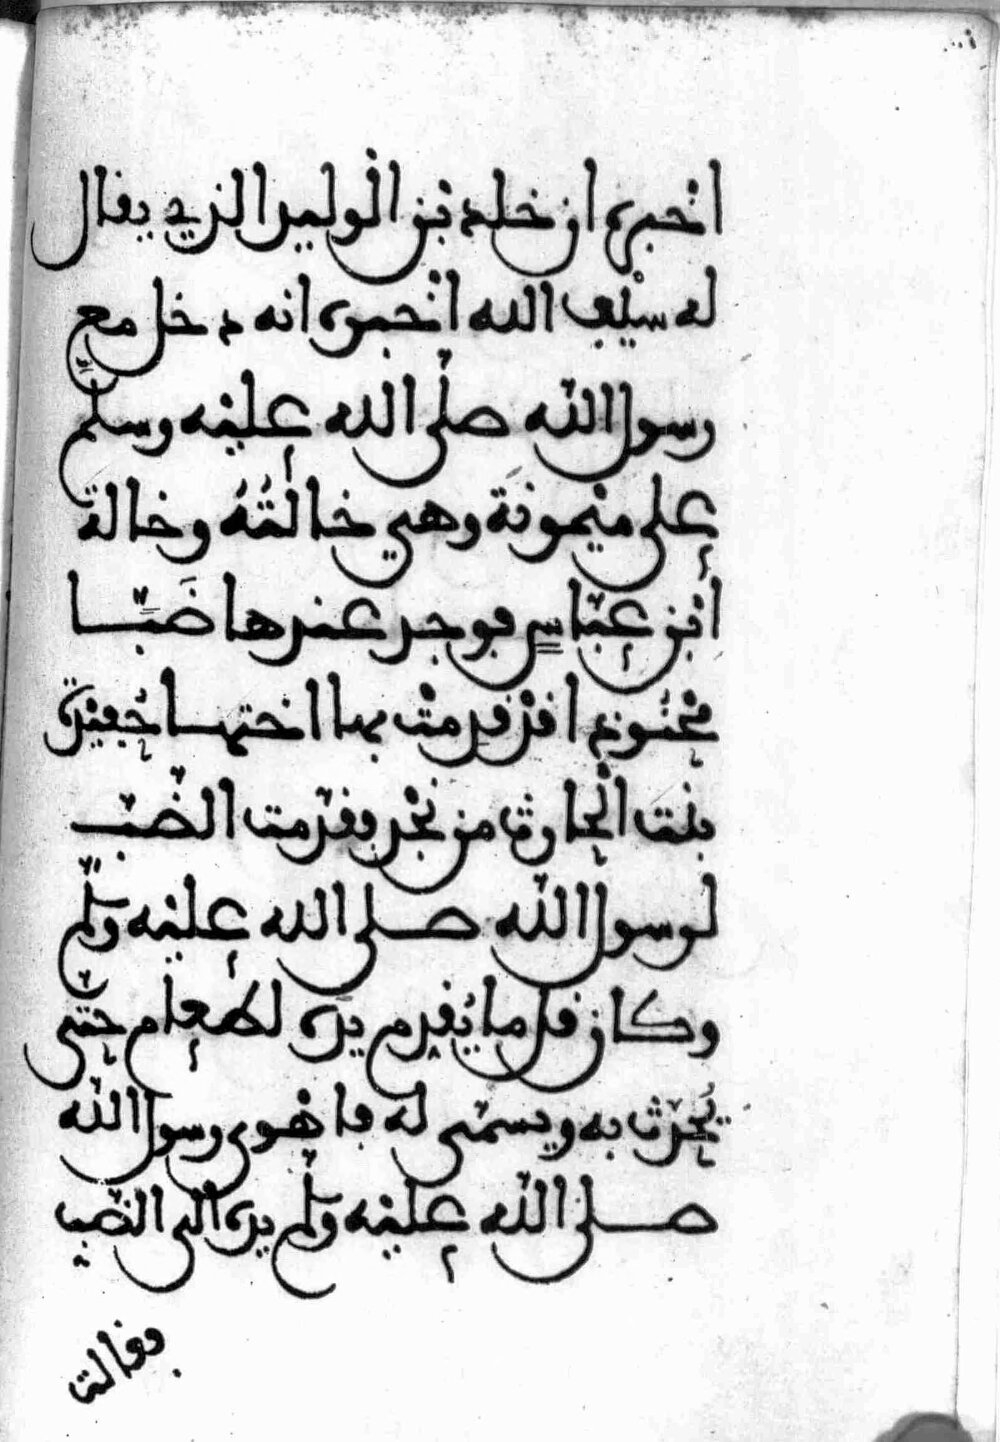 اخبره ان خلد بن الوليد الذي يقال
له سيف الله اخبره انه دخل مع
رسول الله صلى الله عليه وسلم
على ميمونة وهي خالته وخالة
ابن عباس فوجد عندها ضبا
محنوذا قد قدمت بها اختها حفيدة
بنت الحارث من نجد فقدمت الضب
لرسول الله صلى الله عليه وسلم
وكان قل ما يقدم يده لطعام حتى
يحدث به ويسمى له فاهوى رسول الله
صلى الله عليه وسلم يده الى الضب
فقالت